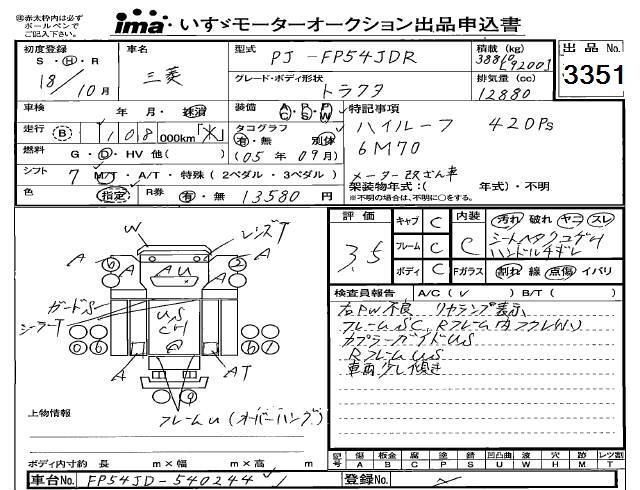 ※赤太枠内は必ず
ボールペンで
ご記入下さい。
ima いすゞモーターオークション出品申込書
初度登録 車名 型式 PJ-FP54JDR 積載(kg) 出品No.
S・H・R 18/10月 三菱 グレード・ボディ形状 トラクタ [9200] 3351
排気量(cc) 12880
車検 年 月・抹消 装備 A/C P/S P/W 特記事項
走行 B 108 000km タコグラフ 有・無 別体 ハイルーフ 420Ps
燃料 G・D・HV 他( ) (05年09月) 6M70
シフト 7 M/T・A/T・特殊(2ペダル・3ペダル) メーター
架装物年式:( 年式)・不明
色 指定 R券 有・無 13580円 ※不明の場合は、不明に○をする。
評価 3.5 キャブ C 内装 C 汚れ 破れ ヤニ スレ
フレーム C
ハンドル
ボディ C Fガラス 割れ 線 点傷 イバリ
検査員報告 A/C(レ) B/T( )
右PW不良 リヤランプ表示
フレームSC、Rフレーム内
カプラーガイドUS
RフレームUS
車両少し傾き
W
レンズT
A
A
A U
ガードS
シーラーT
US
CH
A
AT
フレームU(オーバーハング)
上物情報
記号 傷 板金 腐 塗 錆 凹凸曲 波 穴 時 痛み レンズ割
A B C P S U W H M T
ボディ内寸約 長 m×幅 m×高 m
車台No. FP54JD-540244 登録No.